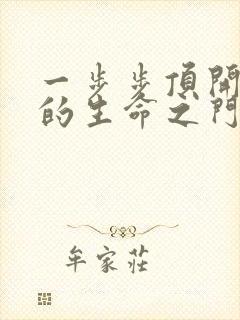 一步步頂開
的生命之門
牟家莊